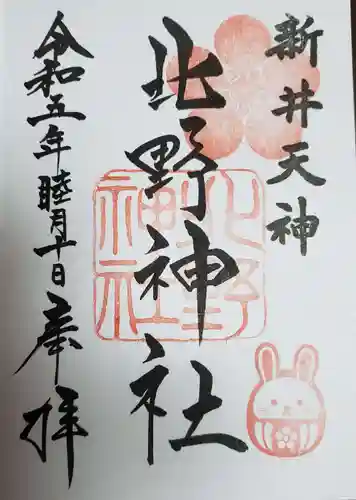 新井天神
北野神社
北野神社
令和五年睦月十日奉拝